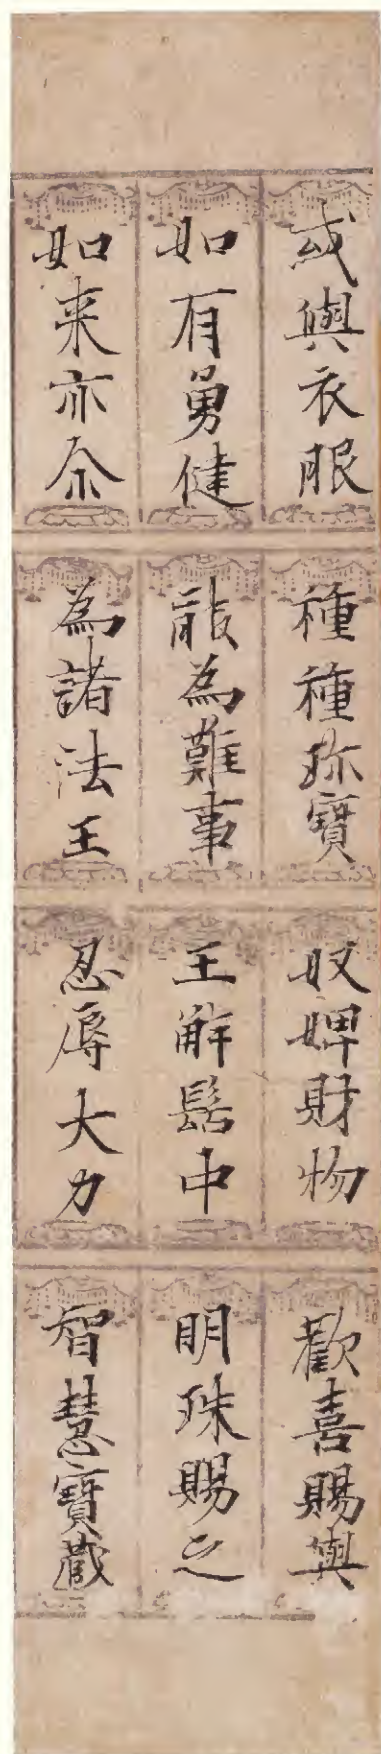 或與衣服 種種珎寶 奴婢財物 歡喜賜與
如有勇健 能為難事 王解髻中 明珠賜之
如来亦尒 為諸法王 忍辱大力 智慧寶蔵